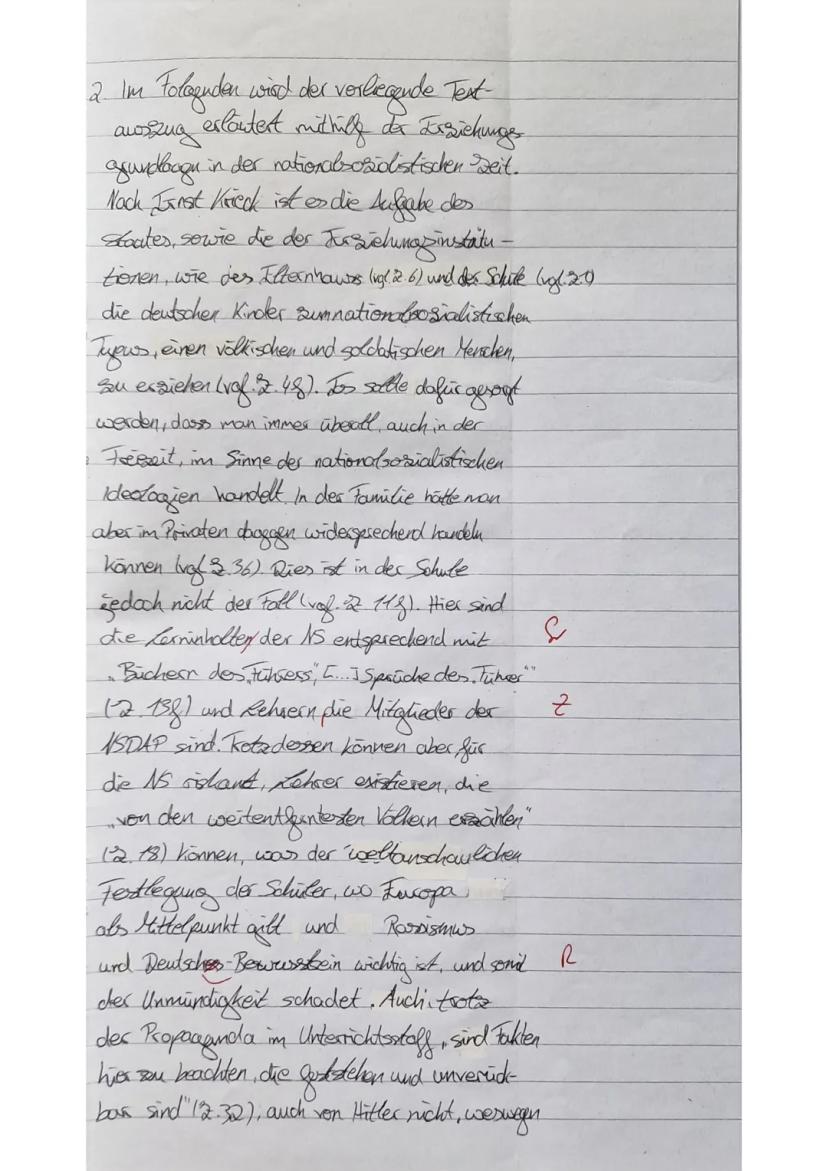 2 Im Folgenden wird der vorliegende Text-
auszug erläutert mithilfe der Erziehungs
grundlagen in der nationalsozialistischen Zeit.
Nach Ernst Krieck ist es die Aufgabe des
Staates, sowie die der Erziehungsinstitu-
tionen, wie des Elternhauses (vgl. Z. 6) und der Schule (vgl. Z. 1)
die deutschen Kinder zum nationalsozialistischen
Typus, einen völkischen und soldatischen Menschen,
zu erziehen (vgl. Z. 4f.). Es sollte dafür gesorgt
werden, dass man immer überall, auch in der
Freizeit, im Sinne der nationalsozialistischen
Ideologien handelt. In der Familie hätte man
aber im Privaten dagegen widersprechend handeln
können (vgl. Z. 36). Dies ist in der Schule
jedoch nicht der Fall (vgl. Z. 11f.). Hier sind
die Lerninhalten der NS entsprechend mit
„Büchern des ‚Führers', [...] Sprüche des ‚Führer'"
(Z. 13f.) und Lehrern die Mitglieder der
NSDAP sind. Trotzdessen können aber für
die NS riskant, Lehrer existieren, die
„von den weitentferntesten Völkern erzählen"
(Z. 18) können, was der weltanschaulichen
Festlegung der Schüler, wo Europa
als Mittelpunkt gilt und Rassismus
und Deutsches-Bewusstsein wichtig ist, und somit
der Unmündigkeit schadet. Auch, trotz
der Propaganda im Unterrichtsstoff, sind Fakten
hier zu beachten, die „feststehen und unverrück-
bar sind" (Z. 32), auch von Hitler nicht, weswegen